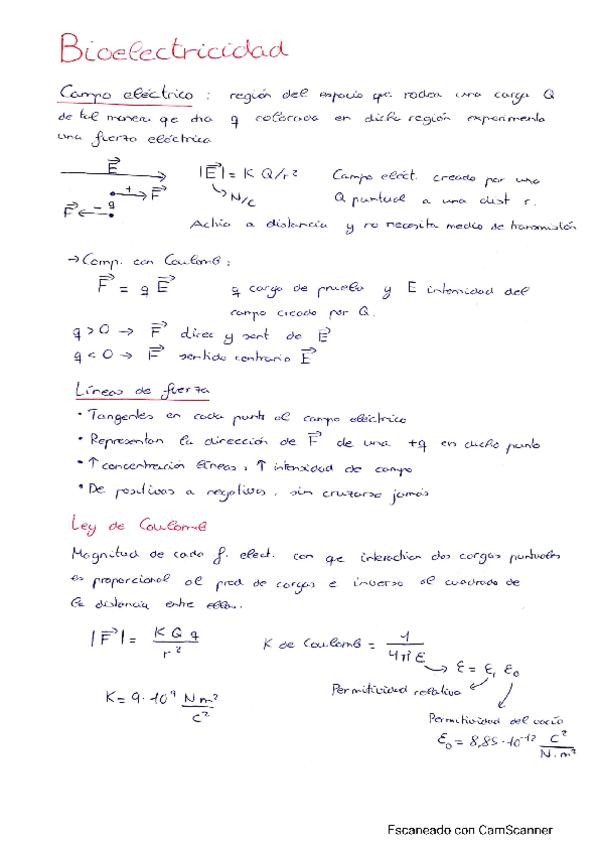 Bioelectricidad
Campo eléctrico : región del espacio qe rodea una carga Q
de tal manera qe otra q colocada en dicha región experimenta
una fuerza eléctrica
E
|E| = K Q/r² Campo eléct. creado por una
+ F N/C Q puntual a una dist r.
F - q
Actúa a distancia y no necesita medio de transmisión
→ Comp. con Coulomb :
F = q E q carga de prueba y E intensidad del
campo creado por Q.
q > 0 → F direc y sent de E
q < 0 → F sentido contrario E
Líneas de fuerza
• Tangentes en cada punto al campo eléctrico
• Representan la dirección de F de una +q en dicho punto
• ↑ concentración líneas, ↑ intensidad de campo
• De positivas a negativas, sin cruzarse jamás
Ley de Coulomb
Magnitud de cada f. elect. con qe interactúan dos cargas puntuales
es proporcional al prod de cargas e inverso al cuadrado de
la distancia entre ellas.
|F| = K Q q / r² K de Coulomb = 1 / 4π ε
→ ε = εr ε0
Permitividad relativa
K = 9·10⁹ N m² / C²
Permitividad del vacío
ε0 = 8,85·10⁻¹² C² / N·m²
Escaneado con CamScanner